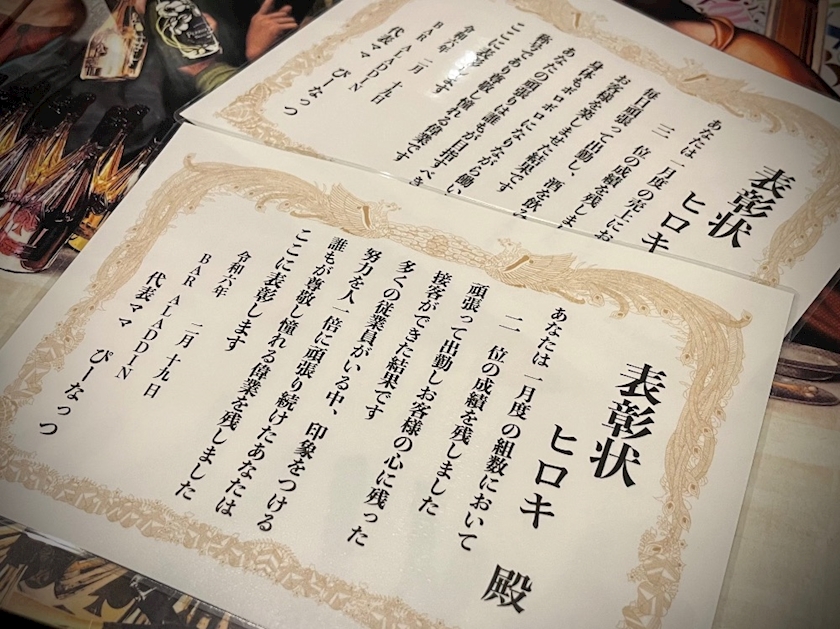 表彰状
ヒロキ 殿
あなたは 一月度の組数において
二 位の成績を残しました
頑張って出勤しお客様の心に残った
接客ができた結果です
多くの従業員がいる中、印象をつける
努力を人一倍に頑張り続けたあなたは
誰もが尊敬し憧れる偉業を残しました
ここに表彰します
令和六年 二月 十九日
BAR ALADDIN
代表ママ ぴーなっつ
表彰状
ヒロキ
あなたは 一月度の売上にお
三 位の成績を残しま
毎日頑張って出勤し、酒を飲み
お客様を楽しませた結果です
身体もボロボロになりながら働い
あなたの頑張りは誰もが目指すべき
称号であり尊敬し憧れる偉業です
ここに表彰します
令和六年 二月 十九日
BAR ALADDIN
代表ママ ぴーなっつ